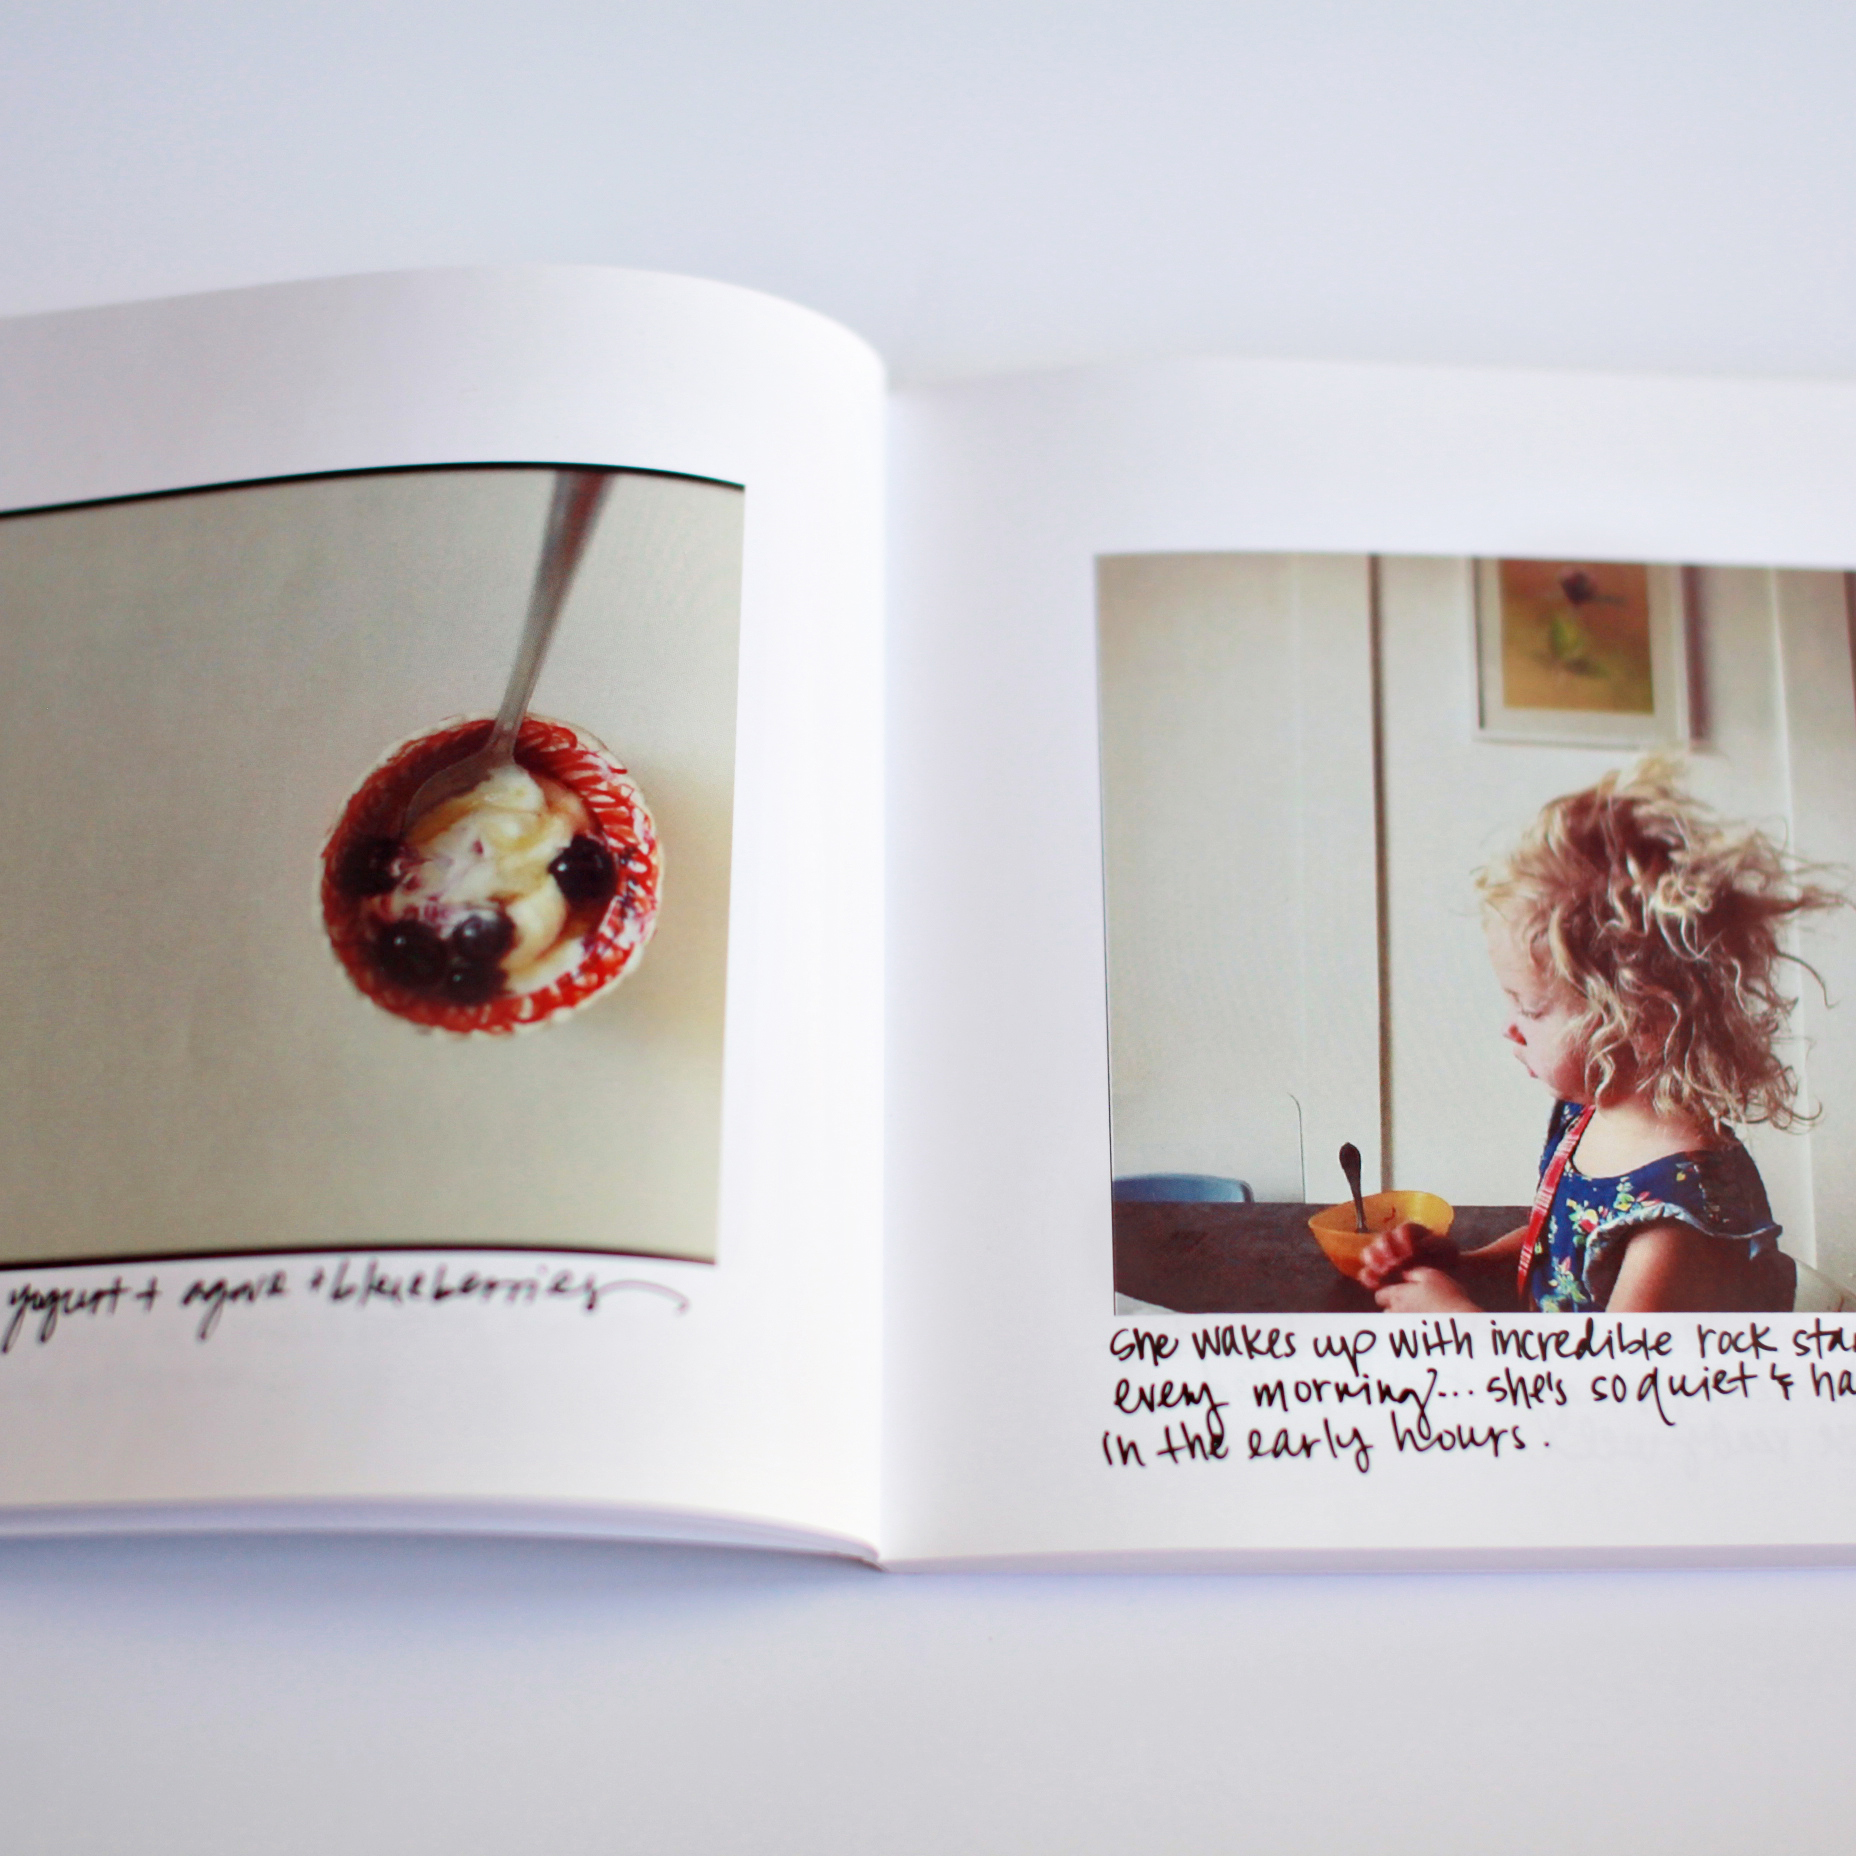 yogurt + agave + blueberries
she wakes up with incredible rock sta
every morning?... she's so quiet & ha
in the early hours.